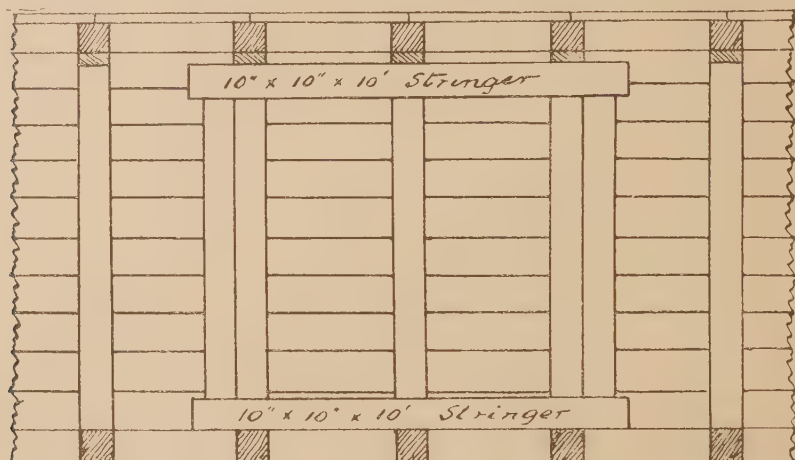 10" x 10" x 10' Stringer
10" x 10" x 10' Stringer